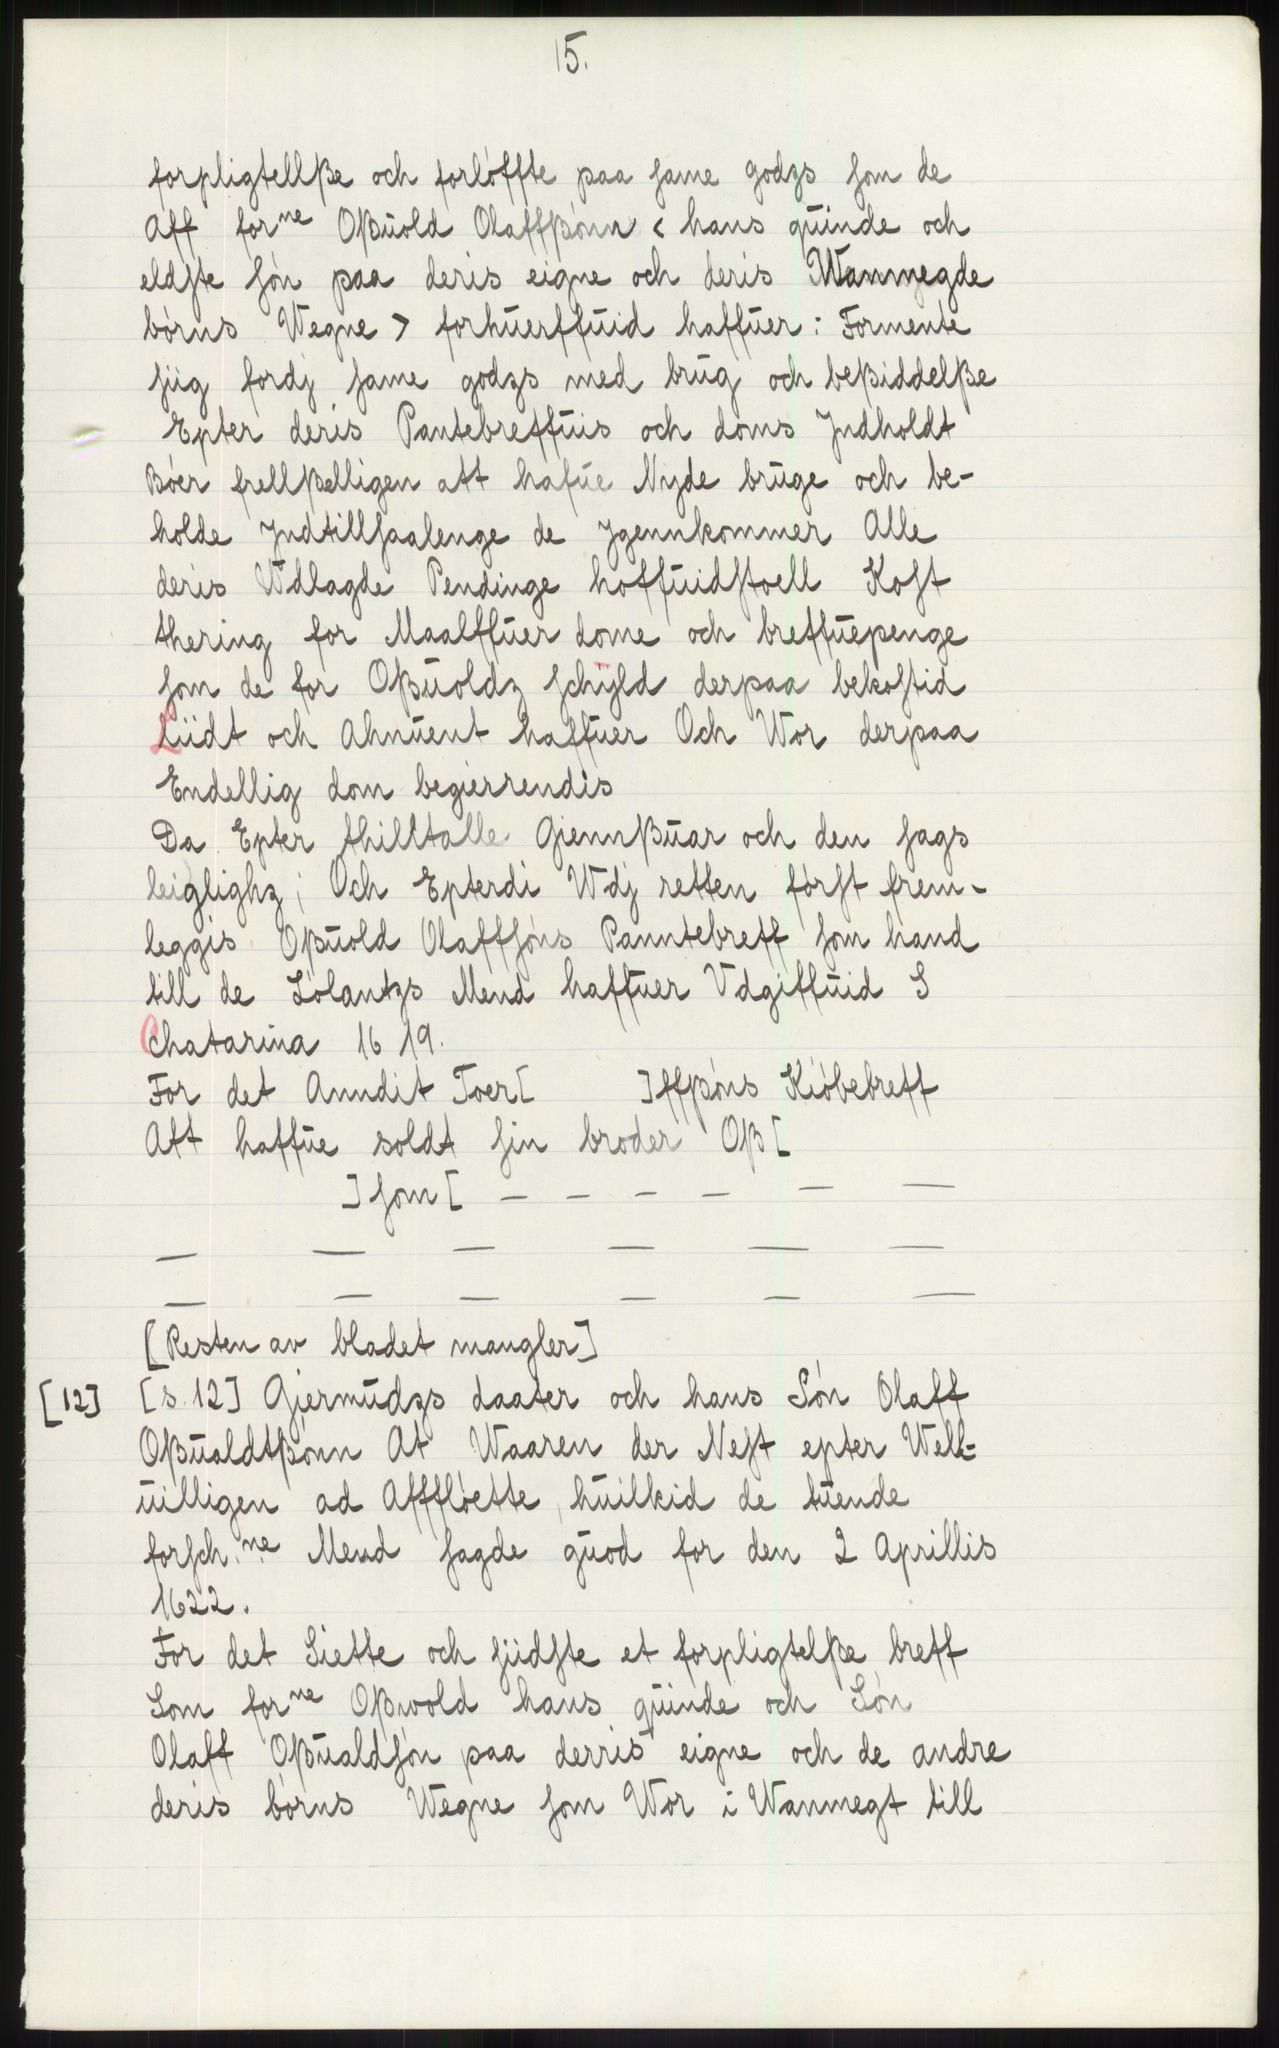 15.
forpligtellße och forløffte paa same godzs som de
Aff forne Oßuold Olaffßønn < hans quinde och
eldste søn paa deris eigne och deris Wanmegde
børns Wegne > forhuerffuid haffuer : Formente
siig fordj same godzs med brug och beßiddelße
Epter deris Pantebreffuis och doms Jndholdt
Bøer frellßelligen att hafue Nyde bruge och be-
holde Jndtillsaalenge de Jgennkommer Alle
deris Wdlagde Pendinge hoffuidstoell Kost
thering for Maalffuer dome och breffuepenge
som de for Oßuoldz schyld derpaa bekostid
Liidt och Ahnuent haffuer Och Wor derpaa
Endellig dom begierrendis
Da Epter thilltalle Giennßuar och den sags
leiglighz ; Och Epterdi Wdj retten først frem-
leggis Oßuold Olaffsøns Panntebreff som hand
till de Lolantzs Mend haffuer Vdgiffuid S
Chatarina 16 19.
For det Anndit Toer[ ]ffßøns Kiøbebreff
Att haffue soldt sin broder Oß[
]som[ — — — — — —
— — — — — —
— — — — — —
[Resten av bladet mangler]
[12] [s. 12] Giermudzs daater och hans Søn Olaff
Oßualdtßønn At Waaren der Nest epter Well-
uilligen ad Affføette, huilkid de tuende
forsch.ne Mend sagde guod for den 2 Aprillis
1622.
For det Siette och siidste et forpligtelße breff
Som forne Oßwold hans quinde och Søn
Olaff Oßualdsøn paa derris eigne och de andre
deris børns Wegne som Wor i Wanmegt till